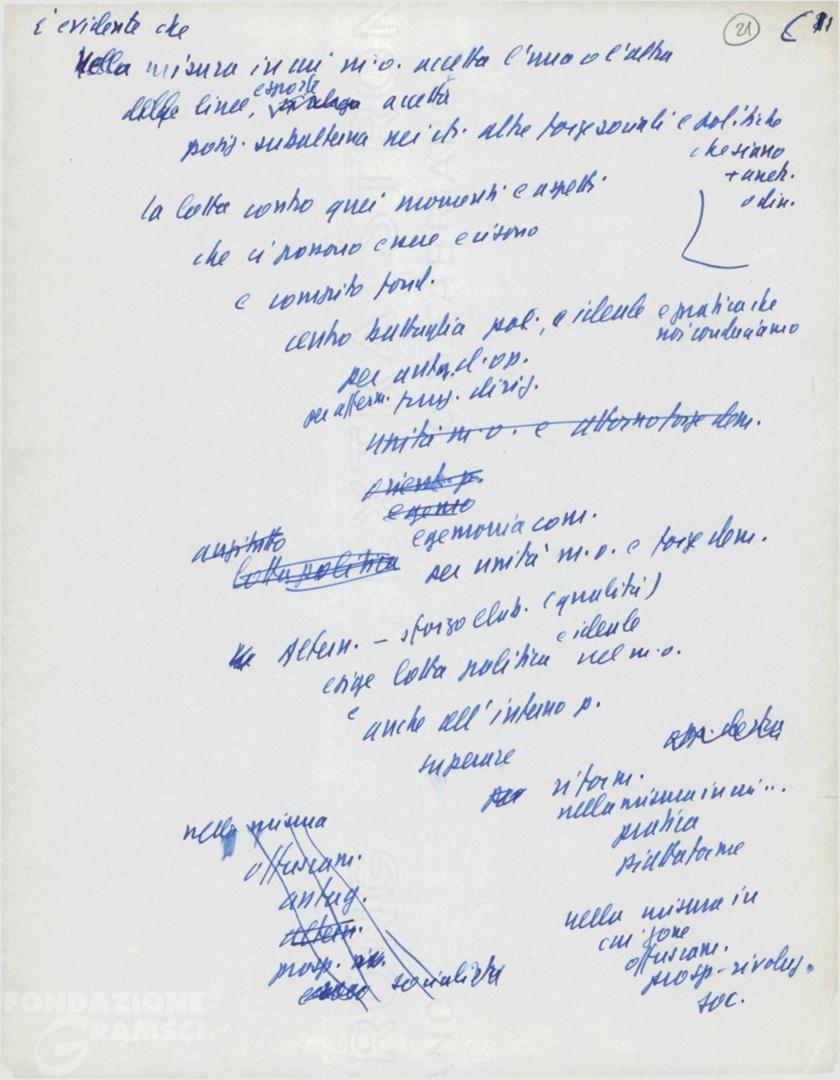 È evidente che
21
Nella misura in cui m.o. accetta l'una o l'altra
delle linee, esposte accetta
posiz. subalterna nei cfr. altre forze sociali e politiche
che siano
+ anch.
o din.
la lotta contro quei momenti e aspetti
che ci possono essere e ci sono
e compito fond.
centro battaglia pol., e ideale e pratica che
noi conduciamo
per auton. cl. op.
per afferm. funz. dirig.
unità m.o. e attorno forze dem.
orient. p.
egemo
anzitutto
egemonia com.
lotta politica
per unità m.o. e forze dem.
Altern. – sforzo elab. (qualità)
esige lotta politica e ideale nel m.o.
e anche all'interno p.
superare
riform.
nella misura in cui...
pratica
piattaforme
nella misura
offuscam.
antag.
altern.
prosp.
socialista
nella misura in
cui
offuscam.
prosp- rivoluz.
soc.
FONDAZIONE
GRAMSCI